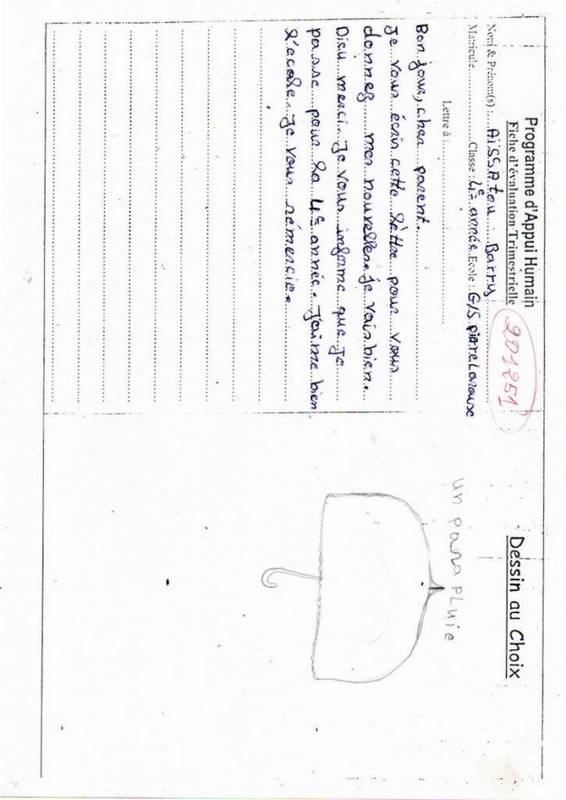 Programme d'Appui Humain
Fiche d'évaluation Trimestrielle
201251
Nom & Prénom(s) : Aissatou Barry
Matricule Classe : 4e année Ecole : G/S pierre Larousse
Lettre à :
Bonjour, cher parent.
Je vous écris cette lettre pour vous
donnez mes nouvelles. je vais bien.
Dieu merci. Je vous informe que je
passe pour la 4e année. J'aime bien
l'ecole. Je vous rémercie.
Dessin au Choix
un parapluie